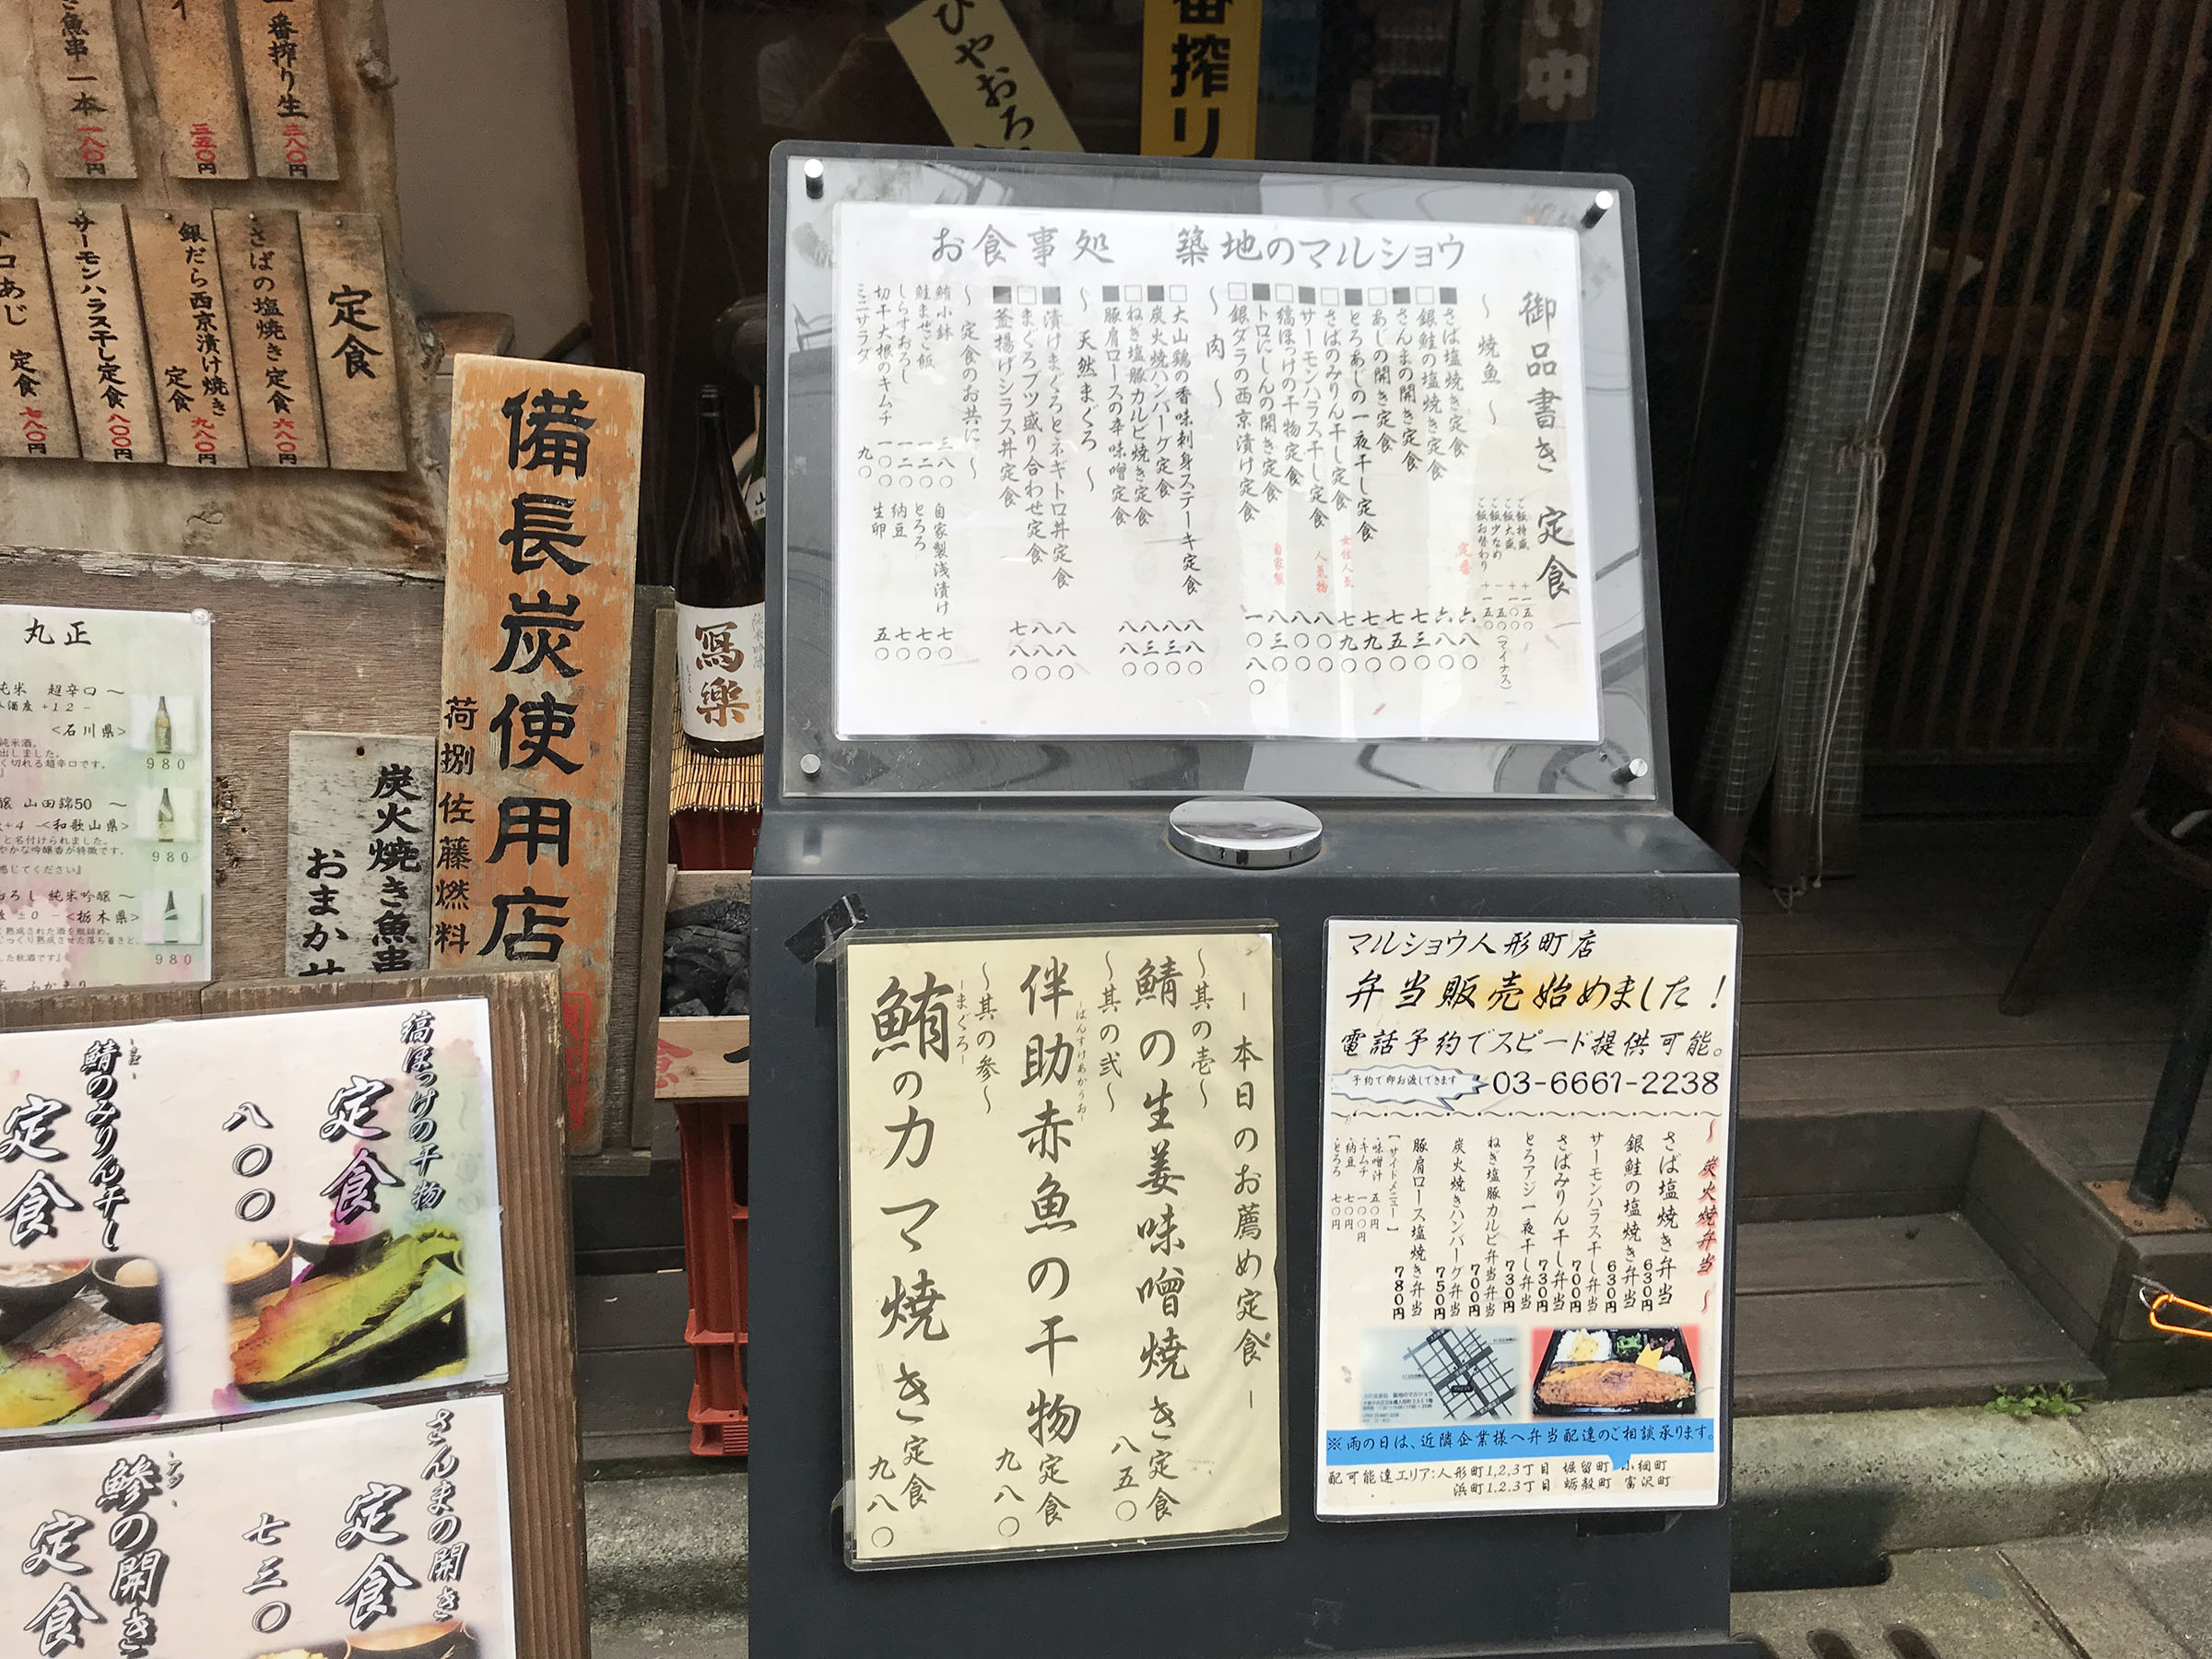 き魚串 一本 一八〇円
三五〇円
一番搾り生 三八〇円
ひやおろ
番搾り
い中
定食
さばの塩焼き定食 六八〇円
銀だら西京漬け焼き定食 九八〇円
サーモンハラス干し定食 八〇〇円
トロあじ 定食 七八〇円
備長炭使用店
荷捌 佐藤燃料
炭火焼き魚串
おまかせ
寫樂
丸正
純米 超辛口 〜
<石川県>
980
山田錦50 〜
+4 -<和歌山県>
と名付けられました。
980
感じてください』
おろし 純米吟醸 〜
±0 -<栃木県>
980
お食事処 築地のマルショウ
御品書き 定食
ご飯特盛 +一五〇
ご飯大盛 +一〇〇
ご飯少なめ -五〇(マイナス)
ご飯お替わり +一五〇
〜焼魚〜
■さば塩焼き定食 定番 六八〇
□銀鮭の塩焼き定食 六八〇
■さんまの開き定食 七三〇
□あじの開き定食 七五〇
■とろあじの一夜干し定食 七九〇
□さばのみりん干し定食 女性人気 七九〇
■サーモンハラス干し定食 人気物 八〇〇
□縞ほっけの干物定食 八〇〇
■トロにしんの開き定食 自家製 八三〇
□銀ダラの西京漬け定食 一〇八〇
〜肉〜
□大山鶏の香味刺身ステーキ定食 八八〇
■炭火焼ハンバーグ定食 八三〇
□ねぎ塩豚カルビ焼き定食 八三〇
■豚肩ロースの辛味噌定食 八八〇
〜天然まぐろ〜
■漬けまぐろとネギトロ丼定食 八八〇
□まぐろブツ盛り合わせ定食 八八〇
■釜揚げシラス丼定食 七八〇
〜定食のお共に〜
鮪小鉢 三八〇 自家製浅漬け 七〇
鮭ませご飯 一二〇 とろろ 七〇
しらすおろし 一二〇 納豆 七〇
切干大根のキムチ 一〇〇 生卵 五〇
ミニサラダ 九〇
ー本日のお薦め定食ー
〜其の壱〜
鯖の生姜味噌焼き定食 八五〇
〜其の弐〜
伴助赤魚の干物定食 九八〇
-はんすけあかうお-
〜其の参〜
鮪のカマ焼き定食 九八〇
-まぐろ-
マルショウ人形町店
弁当販売始めました!
電話予約でスピード提供可能。
予約で即お渡しできます 03-6661-2238
〜炭火焼弁当〜
さば塩焼き弁当 630円
銀鮭の塩焼き弁当 630円
サーモンハラス干し弁当 700円
さばみりん干し弁当 730円
とろアジ一夜干し弁当 730円
ねぎ塩豚カルビ弁当 700円
炭火焼きハンバーグ弁当 750円
豚肩ロース塩焼き弁当 780円
【サイドメニュー】
・味噌汁 五〇円
・キムチ 一〇〇円
・納豆 七〇円
・とろろ 七〇円
※雨の日は、近隣企業様へ弁当配達のご相談承ります。
配可能達エリア:人形町1,2,3丁目 堀留町 小網町
浜町1,2,3丁目 蛎殻町 富沢町
縞ほっけの干物
定食
八〇〇
鯖のみりん干し
定食
さんまの開き
定食
七三〇
鯵の開き
定食